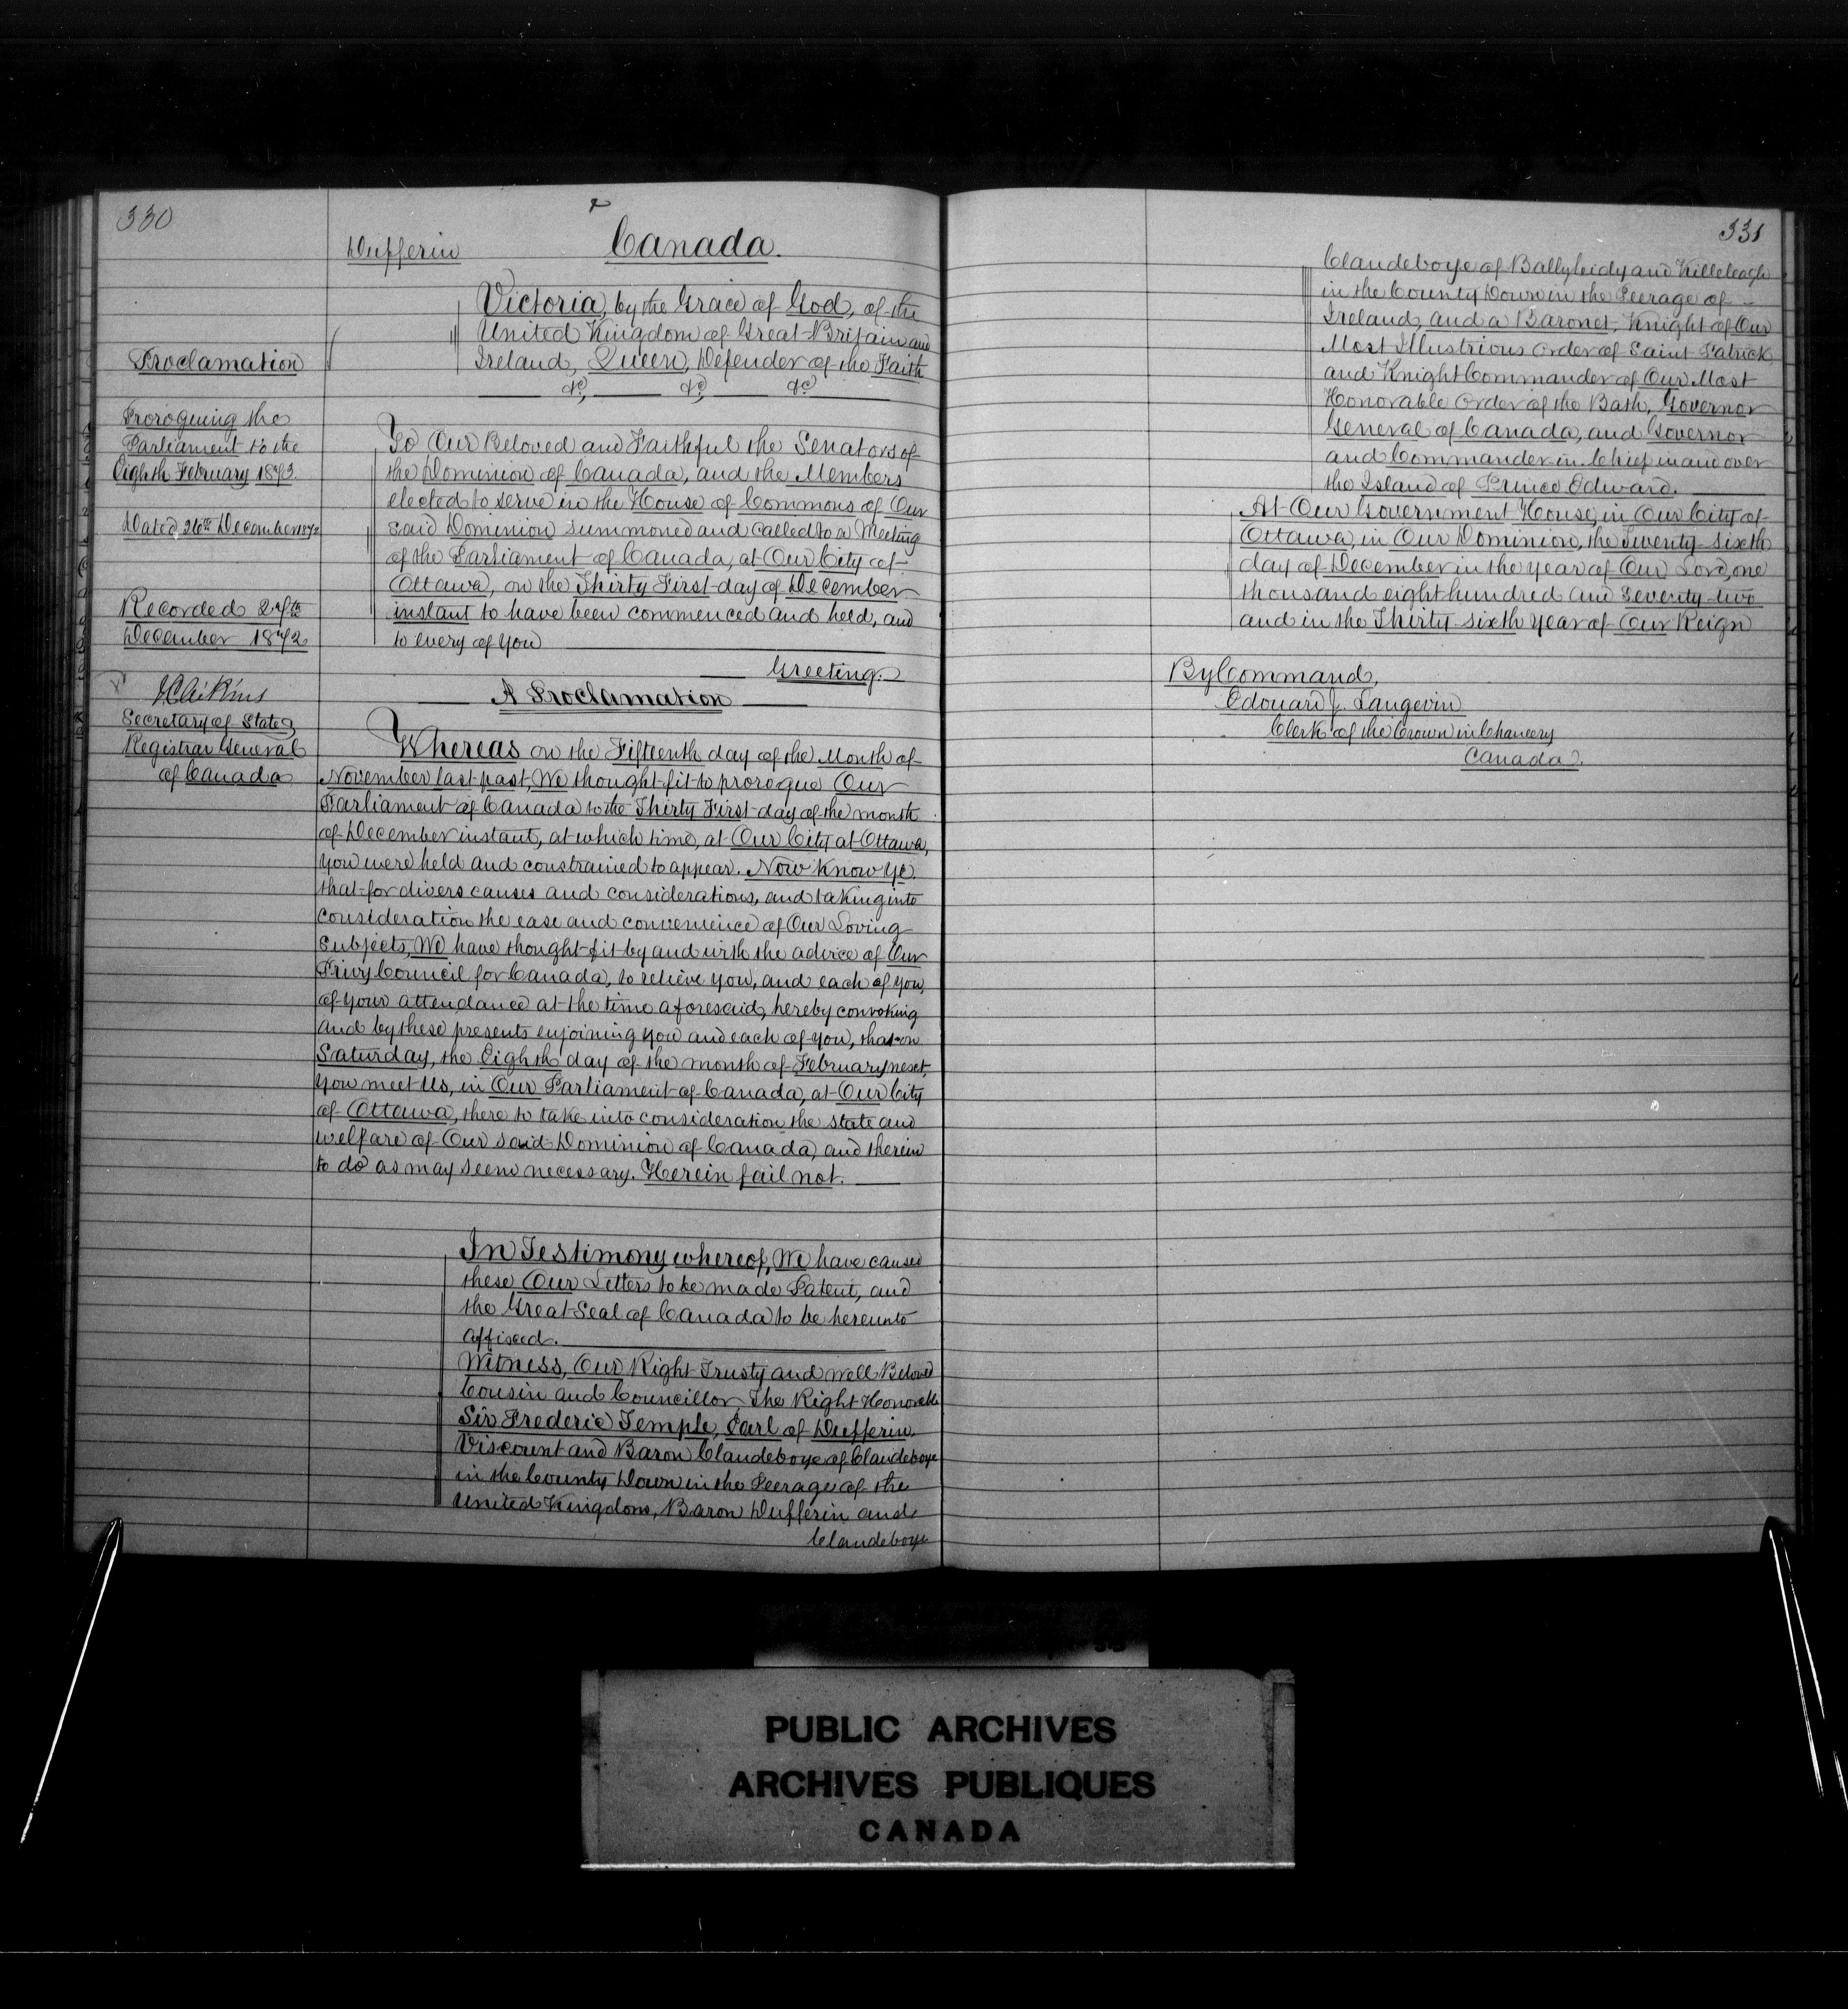 330
Dufferin
Canada.
Proclamation
Proroguing the
Parliament to the
Eighth February 1873.
Dated 26th December 1872
Recorded 27th
December 1872
JCAikins
Secretary of State,
Registrar General
of Canada
Victoria, by the Grace of God, of the
United Kingdom of Great Britain and
Ireland, Queen, Defender of the Faith
&c, &c, &c
To Our Beloved and Faithful the Senators of
the Dominion of Canada, and the Members
elected to serve in the House of Commons of Our
said Dominion summoned and called to a Meeting
of the Parliament of Canada, at Our City of
Ottawa, on the Thirty First day of December
instant to have been commenced and held, and
to every of you
Greeting.
A Proclamation
Whereas on the Fifteenth day of the Month of
November last past, We thought fit to prorogue Our
Parliament of Canada to the Thirty First day of the month
of December instant, at which time, at Our City at Ottawa,
you were held and constrained to appear. Now Know Ye,
that for divers causes and considerations, and taking into
consideration the ease and convenience of Our Loving
Subjects, We have thought fit by and with the advice of Our
Privy Council for Canada, to relieve you, and each of you,
of your attendance at the time aforesaid, hereby convoking
and by these presents enjoining you and each of you, that on
Saturday, the Eighth day of the month of February next,
you meet Us, in Our Parliament of Canada, at Our City
of Ottawa, there to take into consideration the state and
welfare of Our said Dominion of Canada, and therein
to do as may seem necessary. Herein fail not.
In Testimony whereof, We have caused
these Our Letters to be made Patent, and
the Great Seal of Canada to be hereunto
affixed.
Witness, Our Right Trusty and Well Beloved
Cousin and Councillor The Right Honorable
Sir Frederic Temple, Earl of Dufferin,
Viscount and Baron Clandeboye of Clandeboye
in the County Down in the Peerage of the
United Kingdom, Baron Dufferin and
Clandeboye
331
Clandeboye of Ballyleidy and Killeleagh
in the County Down in the Peerage of
Ireland, and a Baronet, Knight of Our
Most Illustrious Order of Saint Patrick
and Knight Commander of Our Most
Honorable Order of the Bath, Governor
General of Canada, and Governor
and Commander in Chief in and over
the Island of Prince Edward.
At Our Government House, in Our City of
Ottawa, in Our Dominion, the Twenty sixth
day of December in the year of Our Lord, one
thousand eight hundred and seventy two
and in the Thirty sixth Year of Our Reign
By Command,
Edouard J. Langevin
Clerk of the Crown in Chancery
Canada.
PUBLIC ARCHIVES
ARCHIVES PUBLIQUES
CANADA